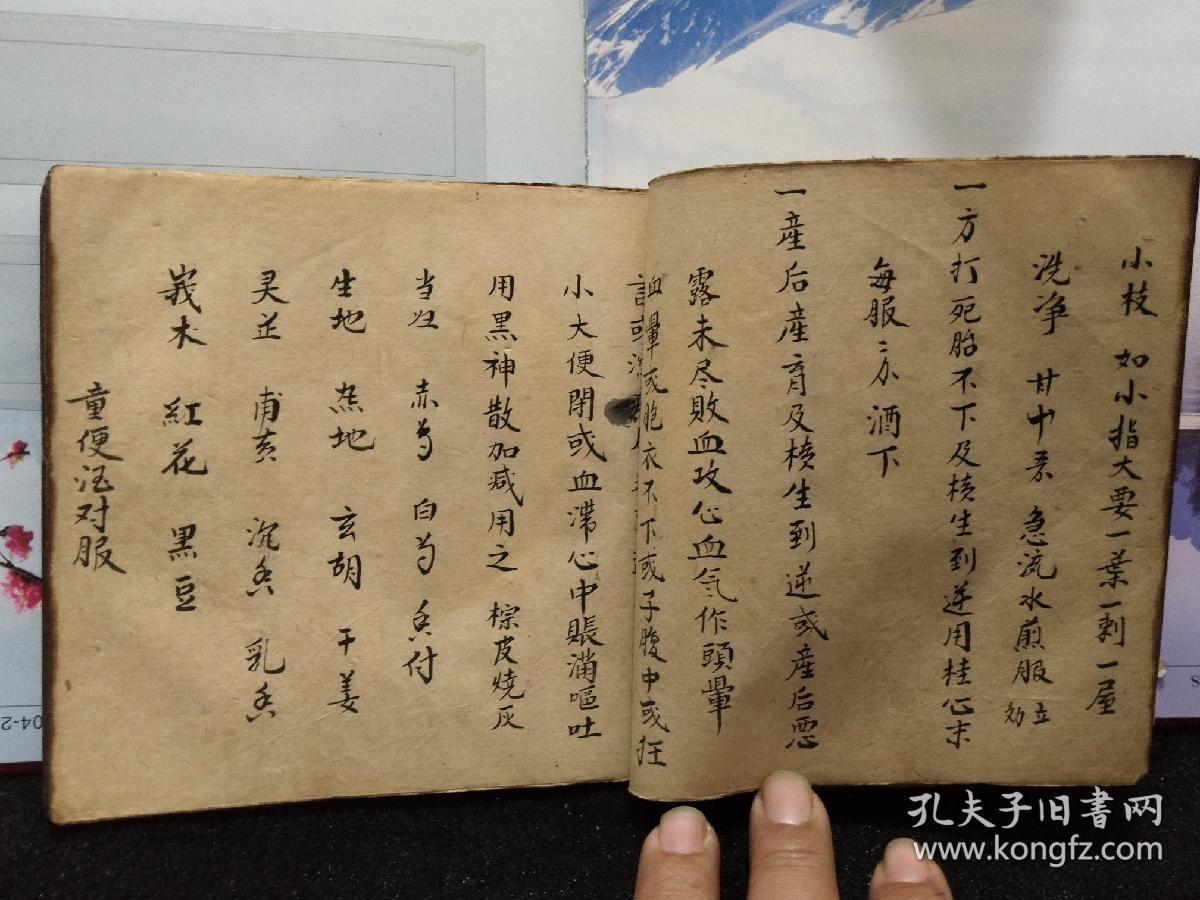 小枝 如小指大要一葉一刺一層
洗净 甘中 急流水煎服 立効
一方打死胎不下及横生到逆用桂心末
每服二 酒下
一産后産育及横生到逆或産后悪
露未尽敗血攻心血气作頭暈
血暈或胞衣不下或子腹中或狂
言或
小大便閉或血滞心中賬滿嘔吐
用黑神散加减用之 棕皮燒灰
当归 赤芍 白芍 香付
生地 熟地 玄胡 干姜
灵芷 甫黄 沉香 乳香
莪木 紅花 黑豆
童便酒对服
孔夫子旧書网
www.kongfz.com
04-2